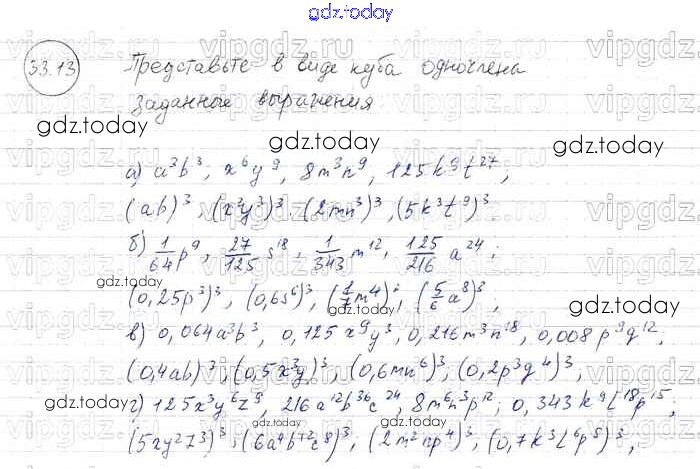 gdz.today
33.13 Представьте в виде куба одночлены
заданные выражения
gdz.today
gdz.today
а) a³b³; x⁶y⁹, 8m³n⁹, 125k⁹t²⁷,
(ab)³, (x²y³)³, (2mn³)³, (5k³t⁹)³.
б) 1/64 p⁹, 27/125 s¹⁸, 1/343 m¹², 125/216 a²⁴;
(0,25p³)³, (0,6s⁶)³, (1/7 m⁴)³, (5/6 a⁸)³;
gdz.today
gdz.today
в) 0,064a³b³, 0,125x⁹y³, 0,216m³n¹⁸, 0,008p⁹q¹²;
(0,4ab)³; (0,5x³y)³, (0,6mn⁶)³, (0,2p³q⁴)³,
gdz.today
gdz.today
г) 125x³y⁶z⁹, 216a¹²b³⁶c²⁴, 8m⁶n³p¹², 0,343k⁹l¹⁸p¹⁵,
(5xy²z³)³; (6a⁴b¹²c⁸)³, (2m²np⁴)³, (0,7k³l⁶p⁵)³,
gdz.today